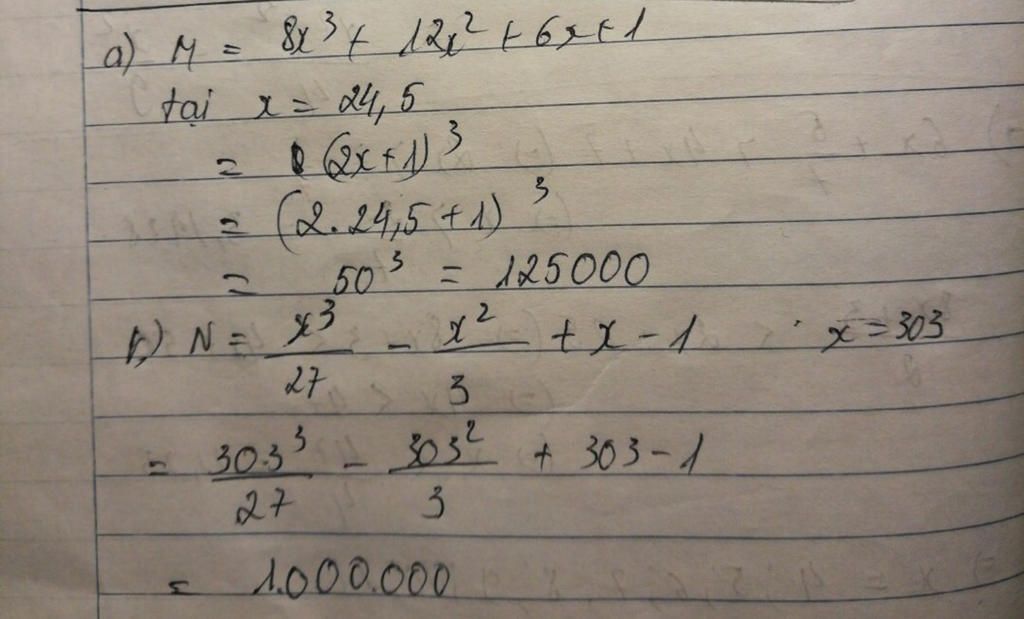 a) M = 8x³ + 12x² + 6x + 1
tại x = 24,5
= (2x+1)³
= (2.24,5+1)³
= 50³ = 125000
b) N = x³/27 - x²/3 + x - 1 x = 303
= 303³/27 - 303²/3 + 303 - 1
= 1.000.000